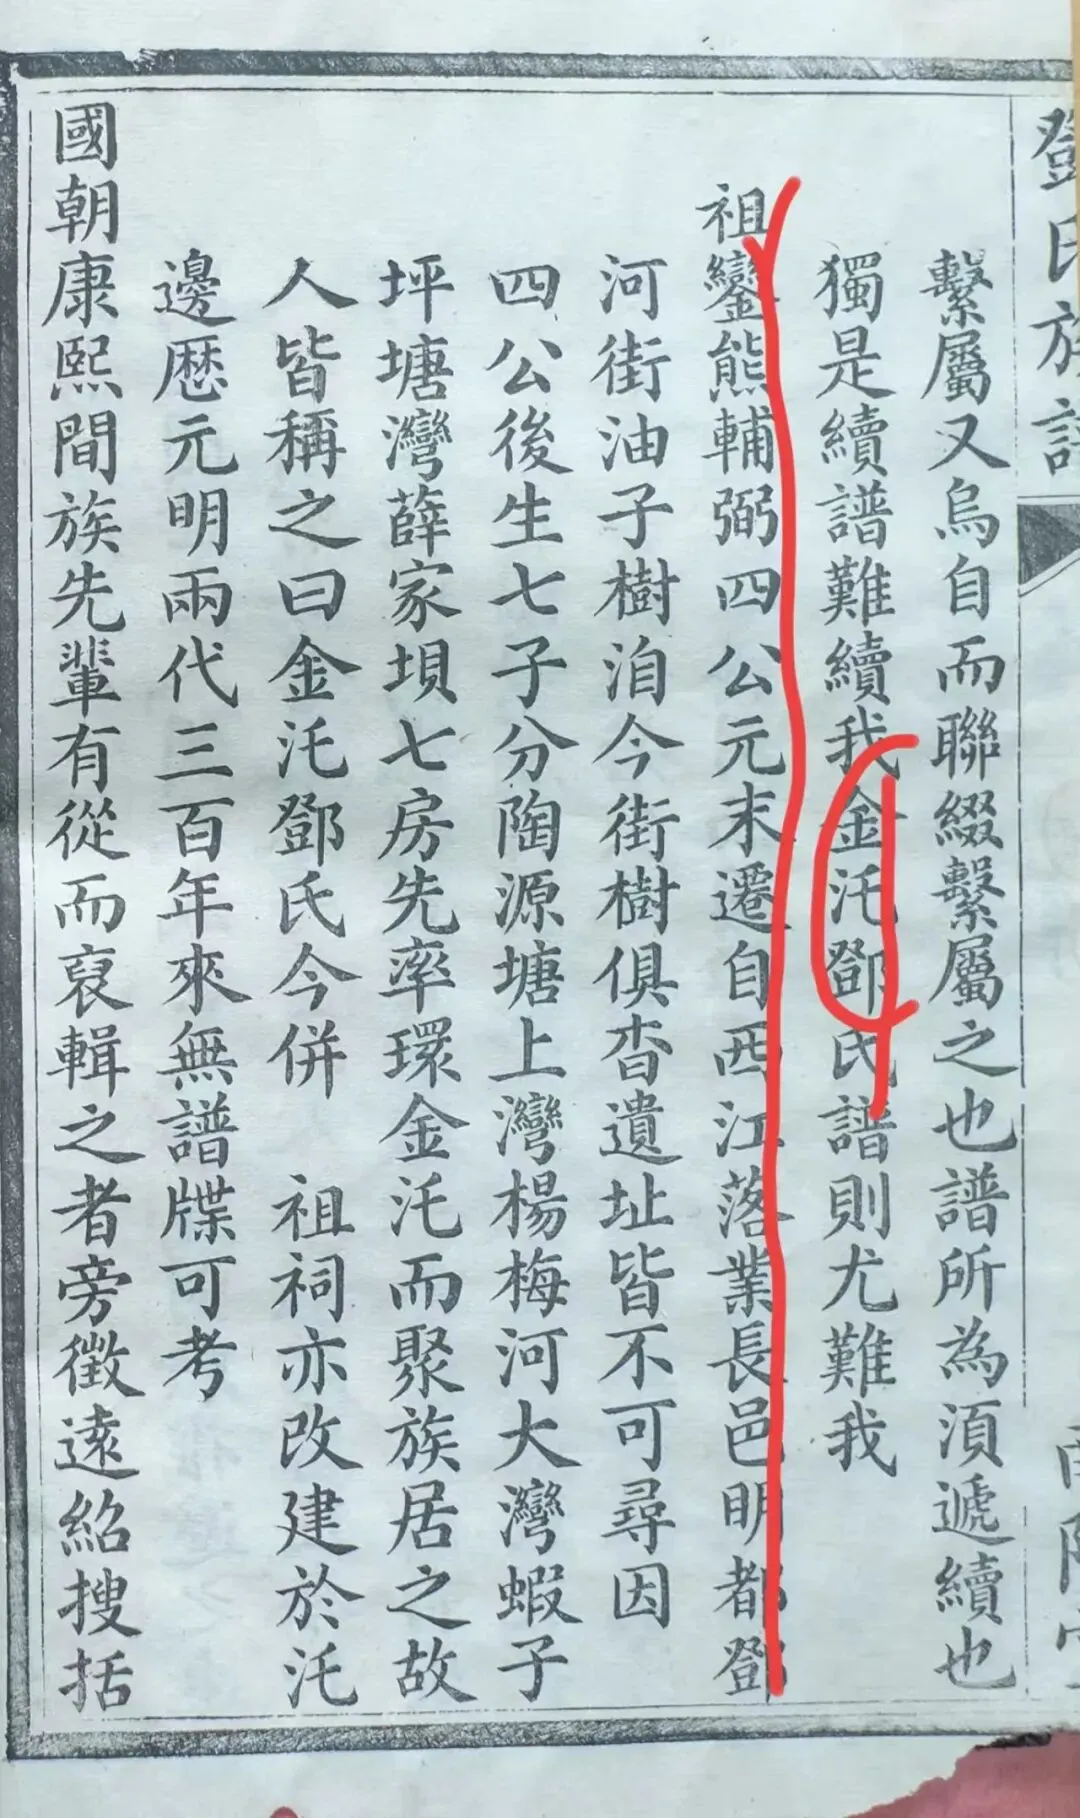 鄧氏族譜
繫屬又烏自而聯綴繫屬之也譜所為須遞續也
獨是續譜難續我金汑鄧氏譜則尤難我
祖鑾熊輔弼四公元末遷自西江落業長邑明都鄧
河街油子樹洎今街樹俱杳遺址皆不可尋因
四公後生七子分陶源塘上灣楊梅河大灣蝦子
坪塘灣薛家垻七房先率環金汑而聚族居之故
人皆稱之曰金汑鄧氏今併 祖祠亦改建於汑
邊厯元明兩代三百年來無譜牒可考
國朝康熙間族先輩有從而裒輯之者旁徵遠紹搜括